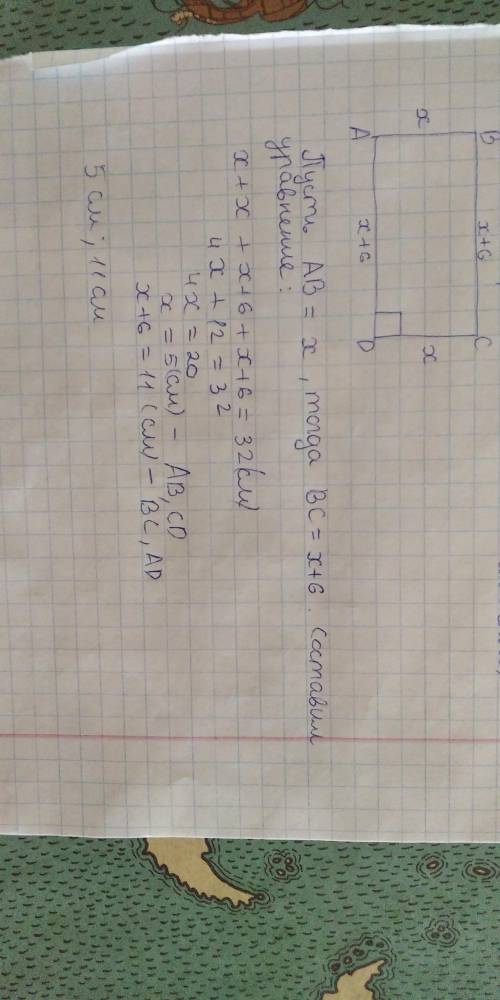 B x+6 C
x x
A x+6 D
Пусть AB = x , тогда BC = x+6 . Составим
уравнение :
x + x + x+6 + x+6 = 32(см)
4x + 12 = 32
4x = 20
x = 5(см) – AB, CD
x+6 = 11 (см) – BC, AD
5 см ; 11 см